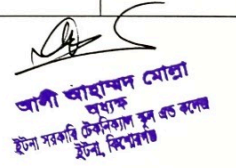 আলী আহাম্মদ মোল্লা
অধ্যক্ষ
ইটনা সরকারি টেকনিক্যাল স্কুল এন্ড কলেজ
ইটনা, কিশোরগঞ্জ